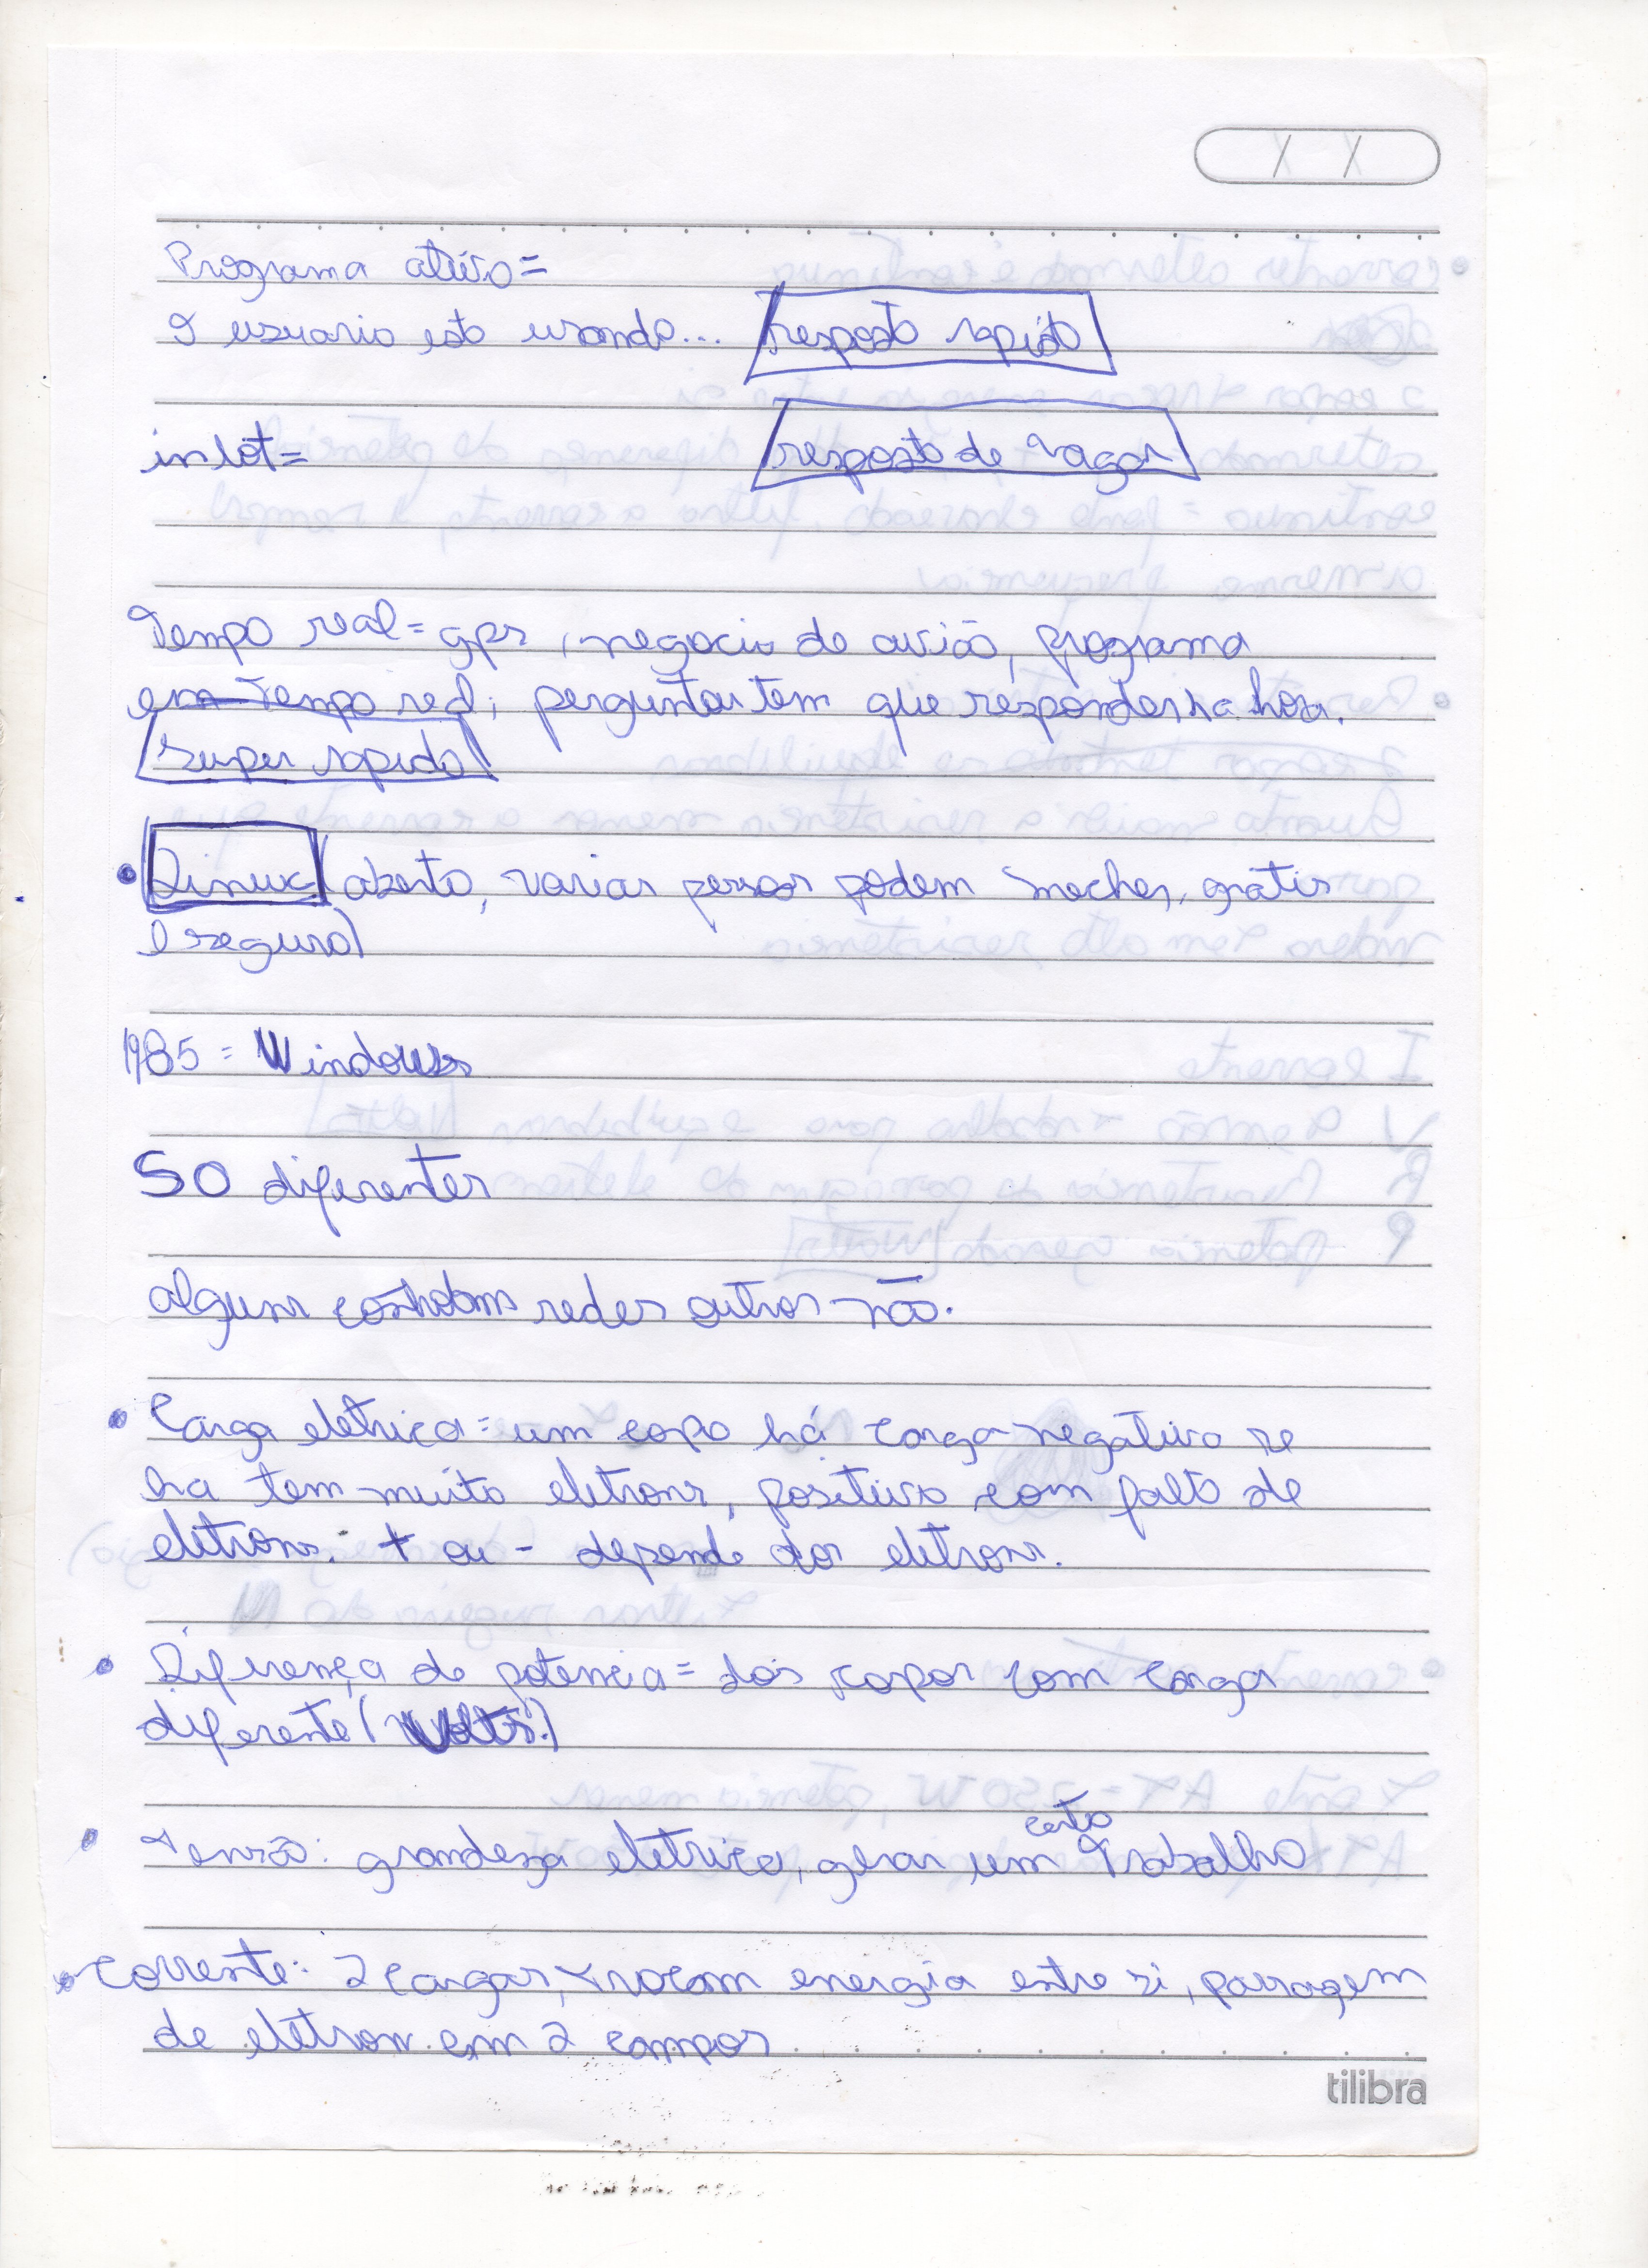 Programa ativo=
O usuario esta usando... resposta rapida
in lot= resposta de vagar
Tempo real= gps, negocio de avião, programa
em tempo real; perguntou tem que responder na hora.
super rapido
• Linux (aberto, varias pessoas podem mecher, gratis
e seguro)
1985 = Windows
SO diferentes
alguns redes outros não.
• Carga eletrica= um copo há carga negativa se
ha tem muito eletrons, positivo com falta de
eletrons. + ou - depende dos eletrons.
• Diferença de potencia= dois copos com carga
diferente (Volts.)
• Tensão: grandeza eletrica, gerar um certo Trabalho
• Corrente: 2 cargas, trocam energia entre si, passagem
de eletron em 2 campos
tilibra